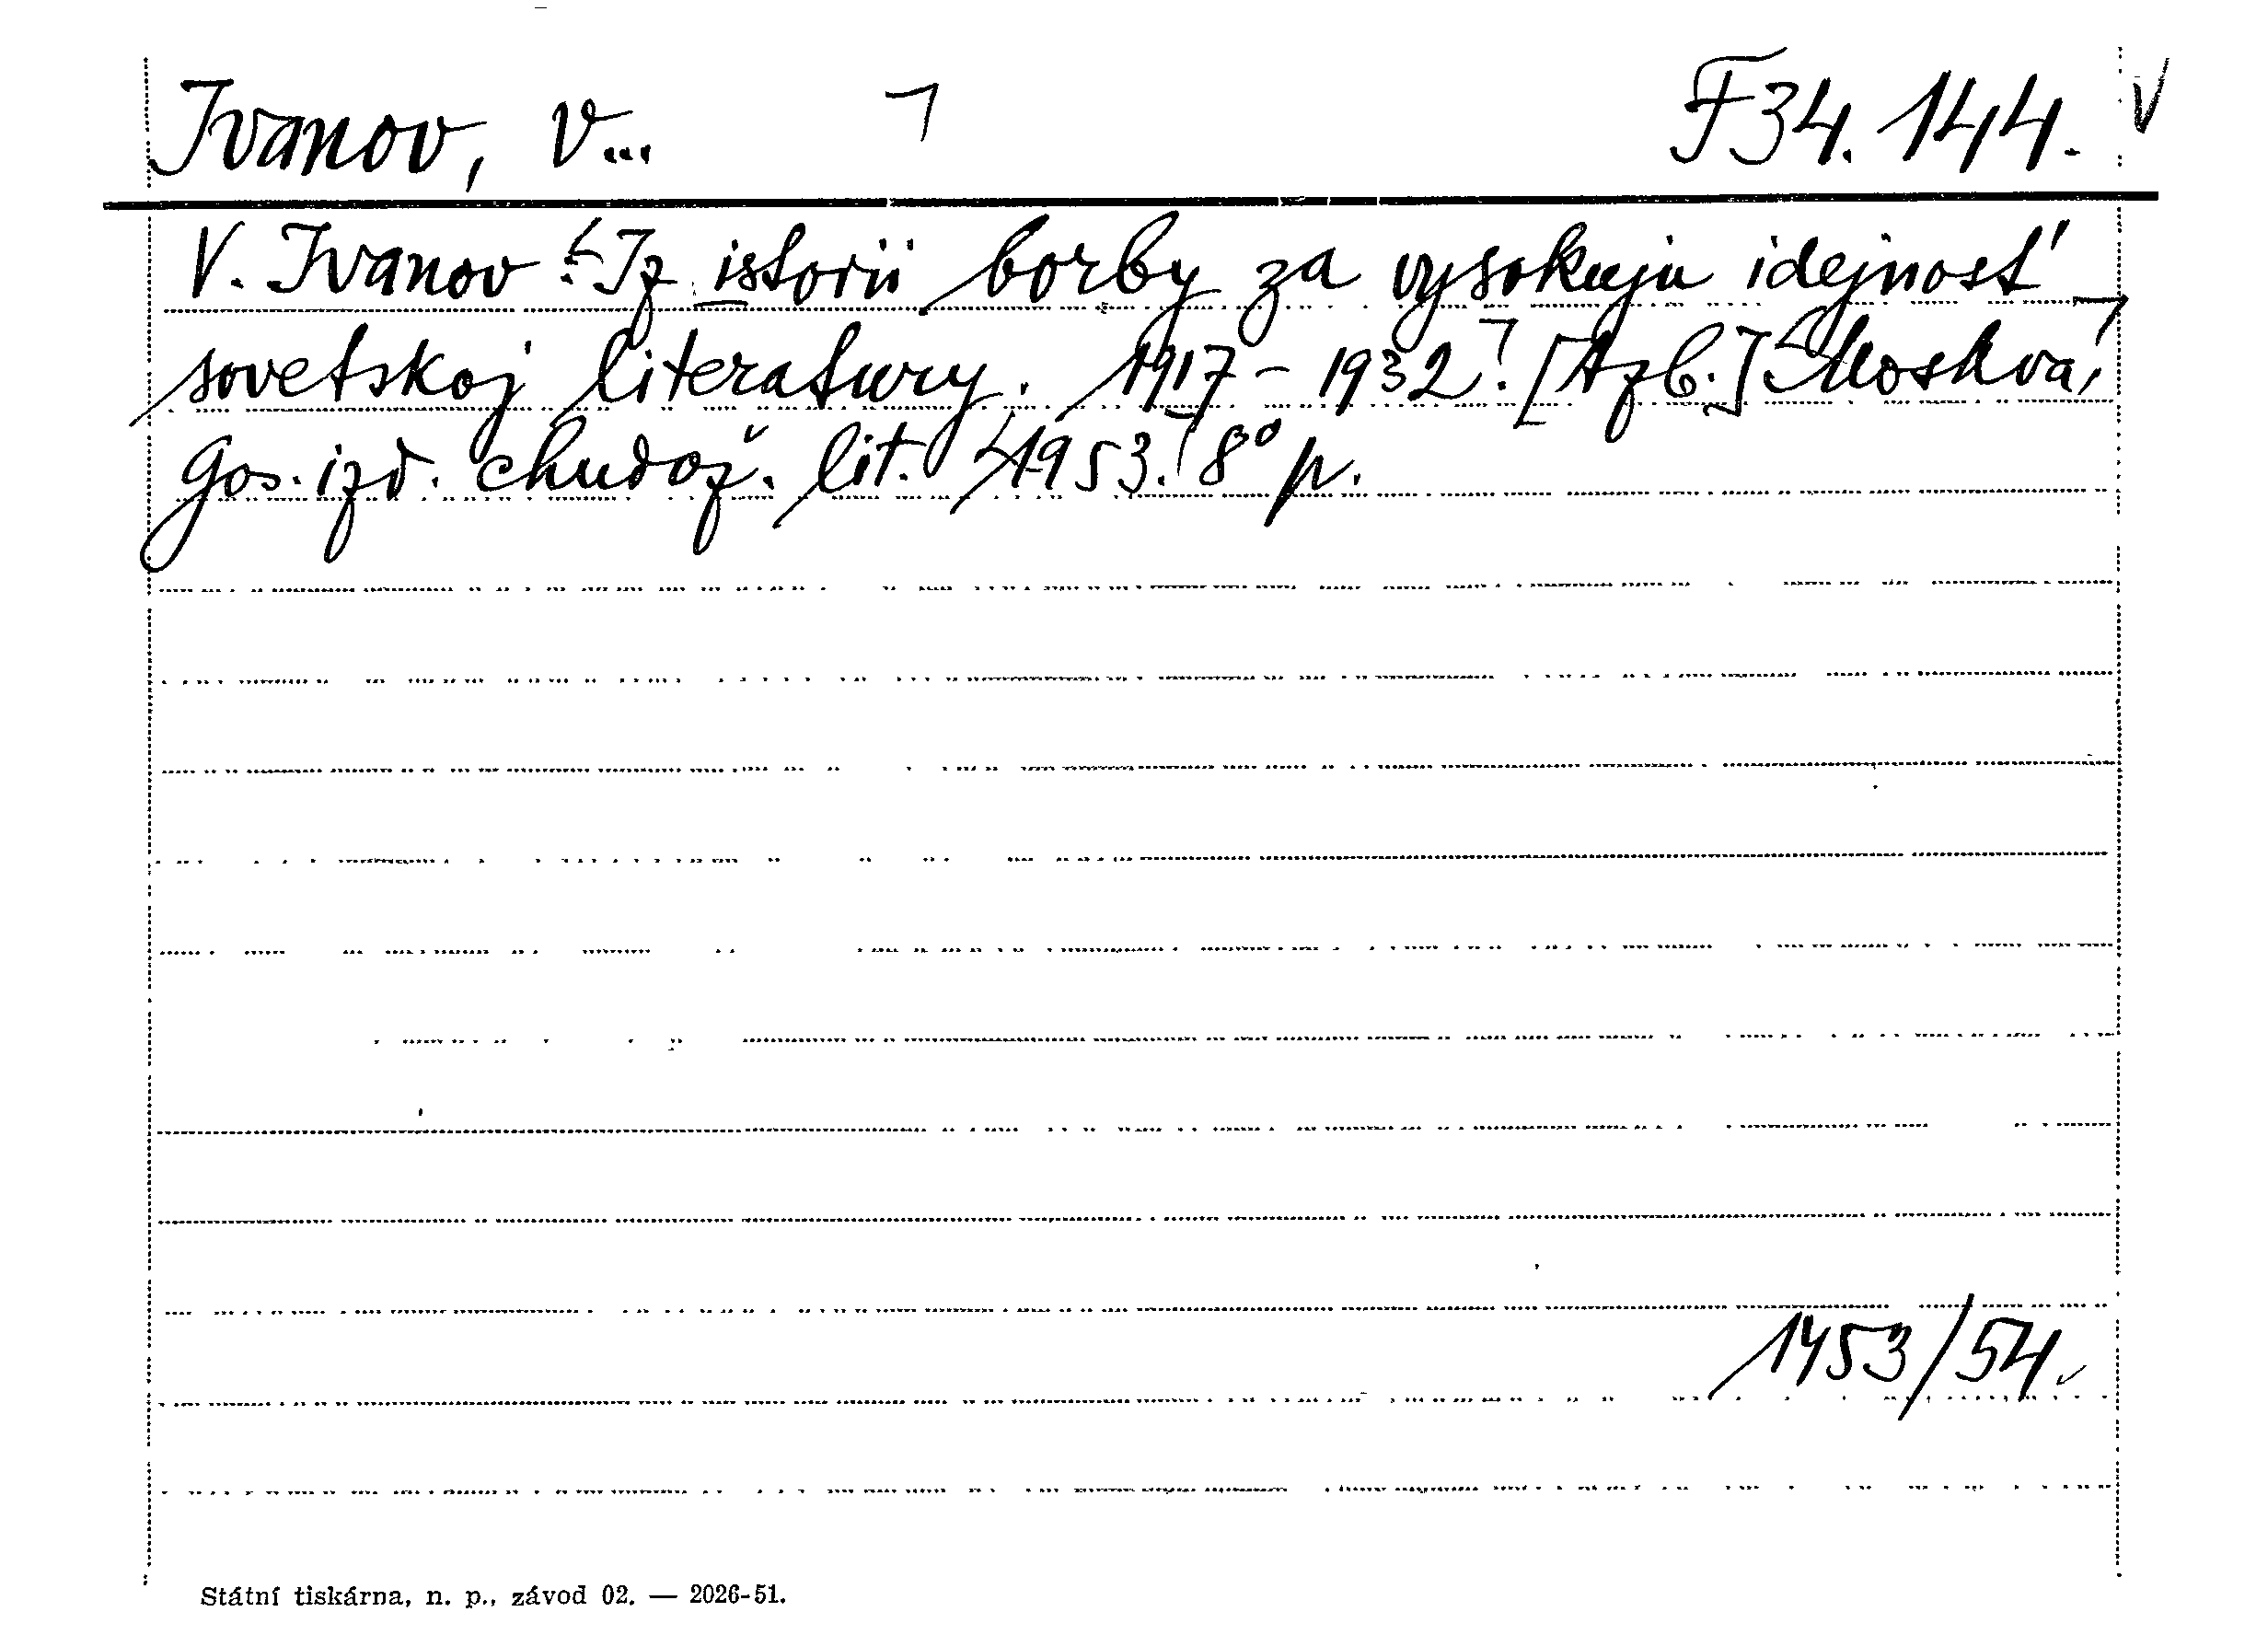 Ivanov, V... F34.144. V
V. Ivanov: Iz istorii borby za vysokuju idejnosť
sovetskoj literatury. 1917-1932. [Azb.] Moskva,
Gos. izd. chudož. lit. 1953. 8° p.
1453/54.
Státní tiskárna, n. p., závod 02. — 2026-51.